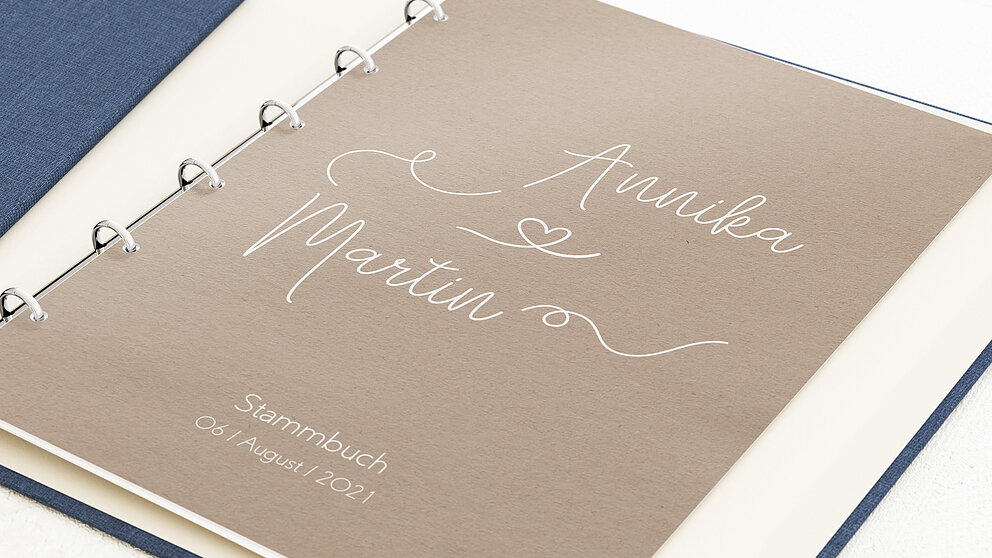 Annika
Martin
Stammbuch
06 / August / 2021